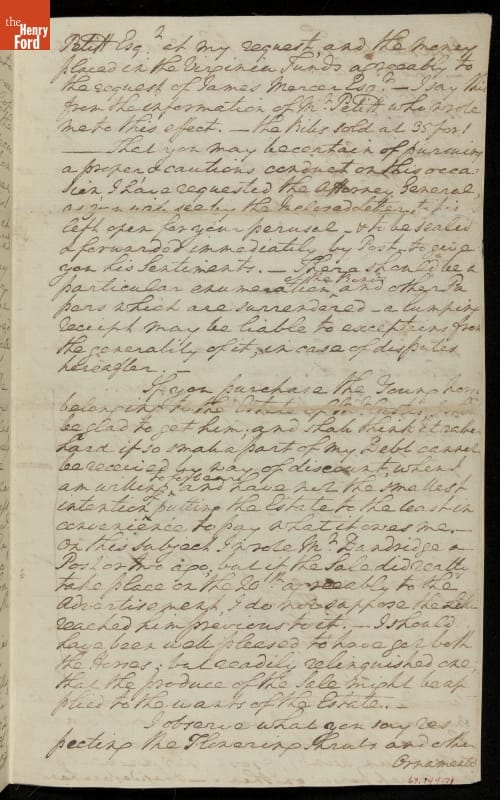 the
Henry
Ford
Petitt Esqr. at my request, and the money
placed in the Virginia Funds agreeably to
the request of James Mercer Esqr. — I say this
from the information of Mr. Petitt who wrote
me to this effect. — the Bills sold at 35 for 1
— That you may be certain of pursuing
a proper & cautious conduct on this occa-
sion, I have requested the Attorney General,
as you will see by the inclosed letter,
left open for your perusal — & to be sealed
& forwarded immediately by Post, to give
you his Sentiments. — There should be a
particular enumeration of the Bonds and other Pa
pers which are surrendered — a lumping
receipt may be liable to exceptions from
the generality of it, in case of disputes
hereafter. —
If you purchase the Young horse
belonging to the Estate of
be glad to get him, and shall think it rather
hard if so small a part of my Debt cannot
be received by way of discount, when I
am willing and have not the smallest
intention putting the Estate to the least in
convenience to pay what it owes me. —
On this subject I wrote Mr. Dandridge a
Post or two ago, but if the Sale did really
take place on the 20th. agreeably to the
Advertisement, I do not suppose the letter
reached him previous to it. — I should
have been well pleased to have got both
the Horses; but readily relinquished one,
that the produce of the Sale might be ap
plied to the wants of the Estate. —
I observe what you say res-
pecting the Flowering Shrubs and other
Ornamental